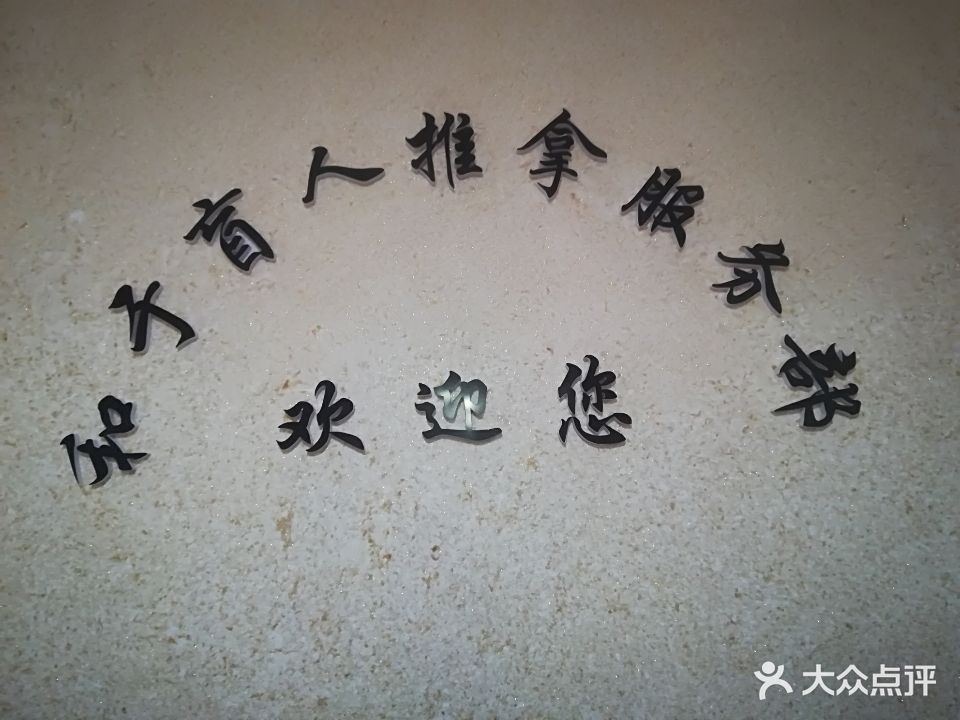 和子盲人推拿服务部
欢迎您
大众点评